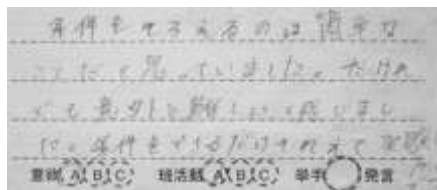 条件をそろえるのは簡単な
ことだと思っていました。だけれ
ども意外と難しいと感じまし
た。条件をできるだけそろえて実験
意欲 A B C 班活動 A B C 挙手 発言